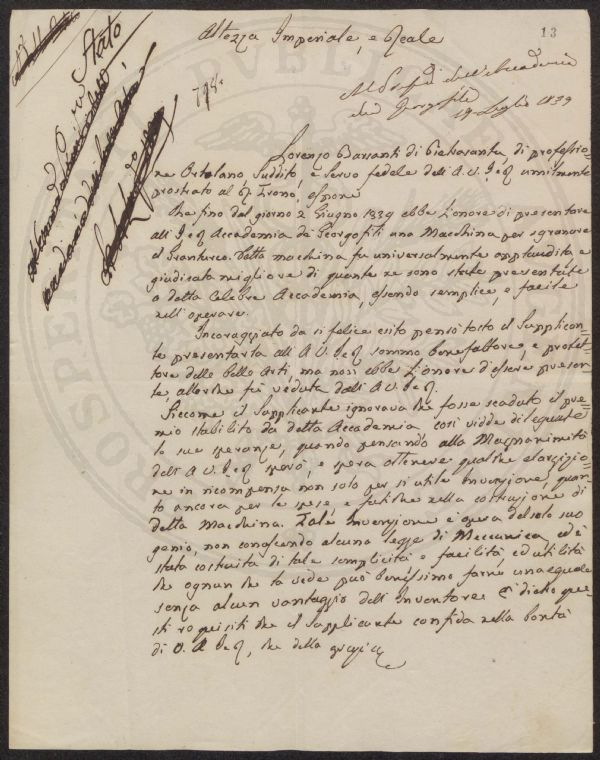 13
Altezza Imperiale, e Reale
Stato
798.
Al Presid. dell'Accademia
dei Georgofili
19 Luglio 1839
Lorenzo Barsanti di Pietrasanta, di professio=
ne Ortolano, Suddito, e servo fedele dell'A.V.I. e R. umilmente
prostrato al R. Trono, espone
Che fino dal giorno 2 Giugno 1839 ebbe l'onore di presentare
all'I. e R. Accademia de Georgofili una Macchina per sgranare
il Granturco. Detta macchina fu universalmente applaudita e
giudicata migliore di quante ne sono state presentate
a detta Celebre Accademia, essendo semplice, e facile
nell'operare.
Incoraggiato da sì felice esito pensò tosto il Supplican=
te presentarla all'A.V.I. e R. sommo benefattore, e protet=
tore delle belle Arti, ma non ebbe l'onore d'essere presen=
te, allorchè fù veduta dall'A.V.I. e R.
Siccome il Supplicante ignorava che fosse scaduto il pre=
mio stabilito da detta Accademia così vidde dileguate
le sue speranze, quando pensando alla Magnanimità
dell'A.V.I. e R. sperò, e spera ottenere qualche elargizio=
ne in ricompensa non solo per sì utile Invenzione, quan=
to ancora per le spese, e fatiche nella costruzione di
detta Macchina. Tale Invenzione è opera del solo suo
genio, non conoscendo alcuna legge di Meccanica, ed è
stata costruita di tale semplicità e facilità, ed utilità
che ognun che la vede può benissimo farne una eguale
senza alcun vantaggio dell'Inventore. È dietro que=
sti requisiti che il Supplicante confida nella bontà
di V.A.I. e R., che della grazia